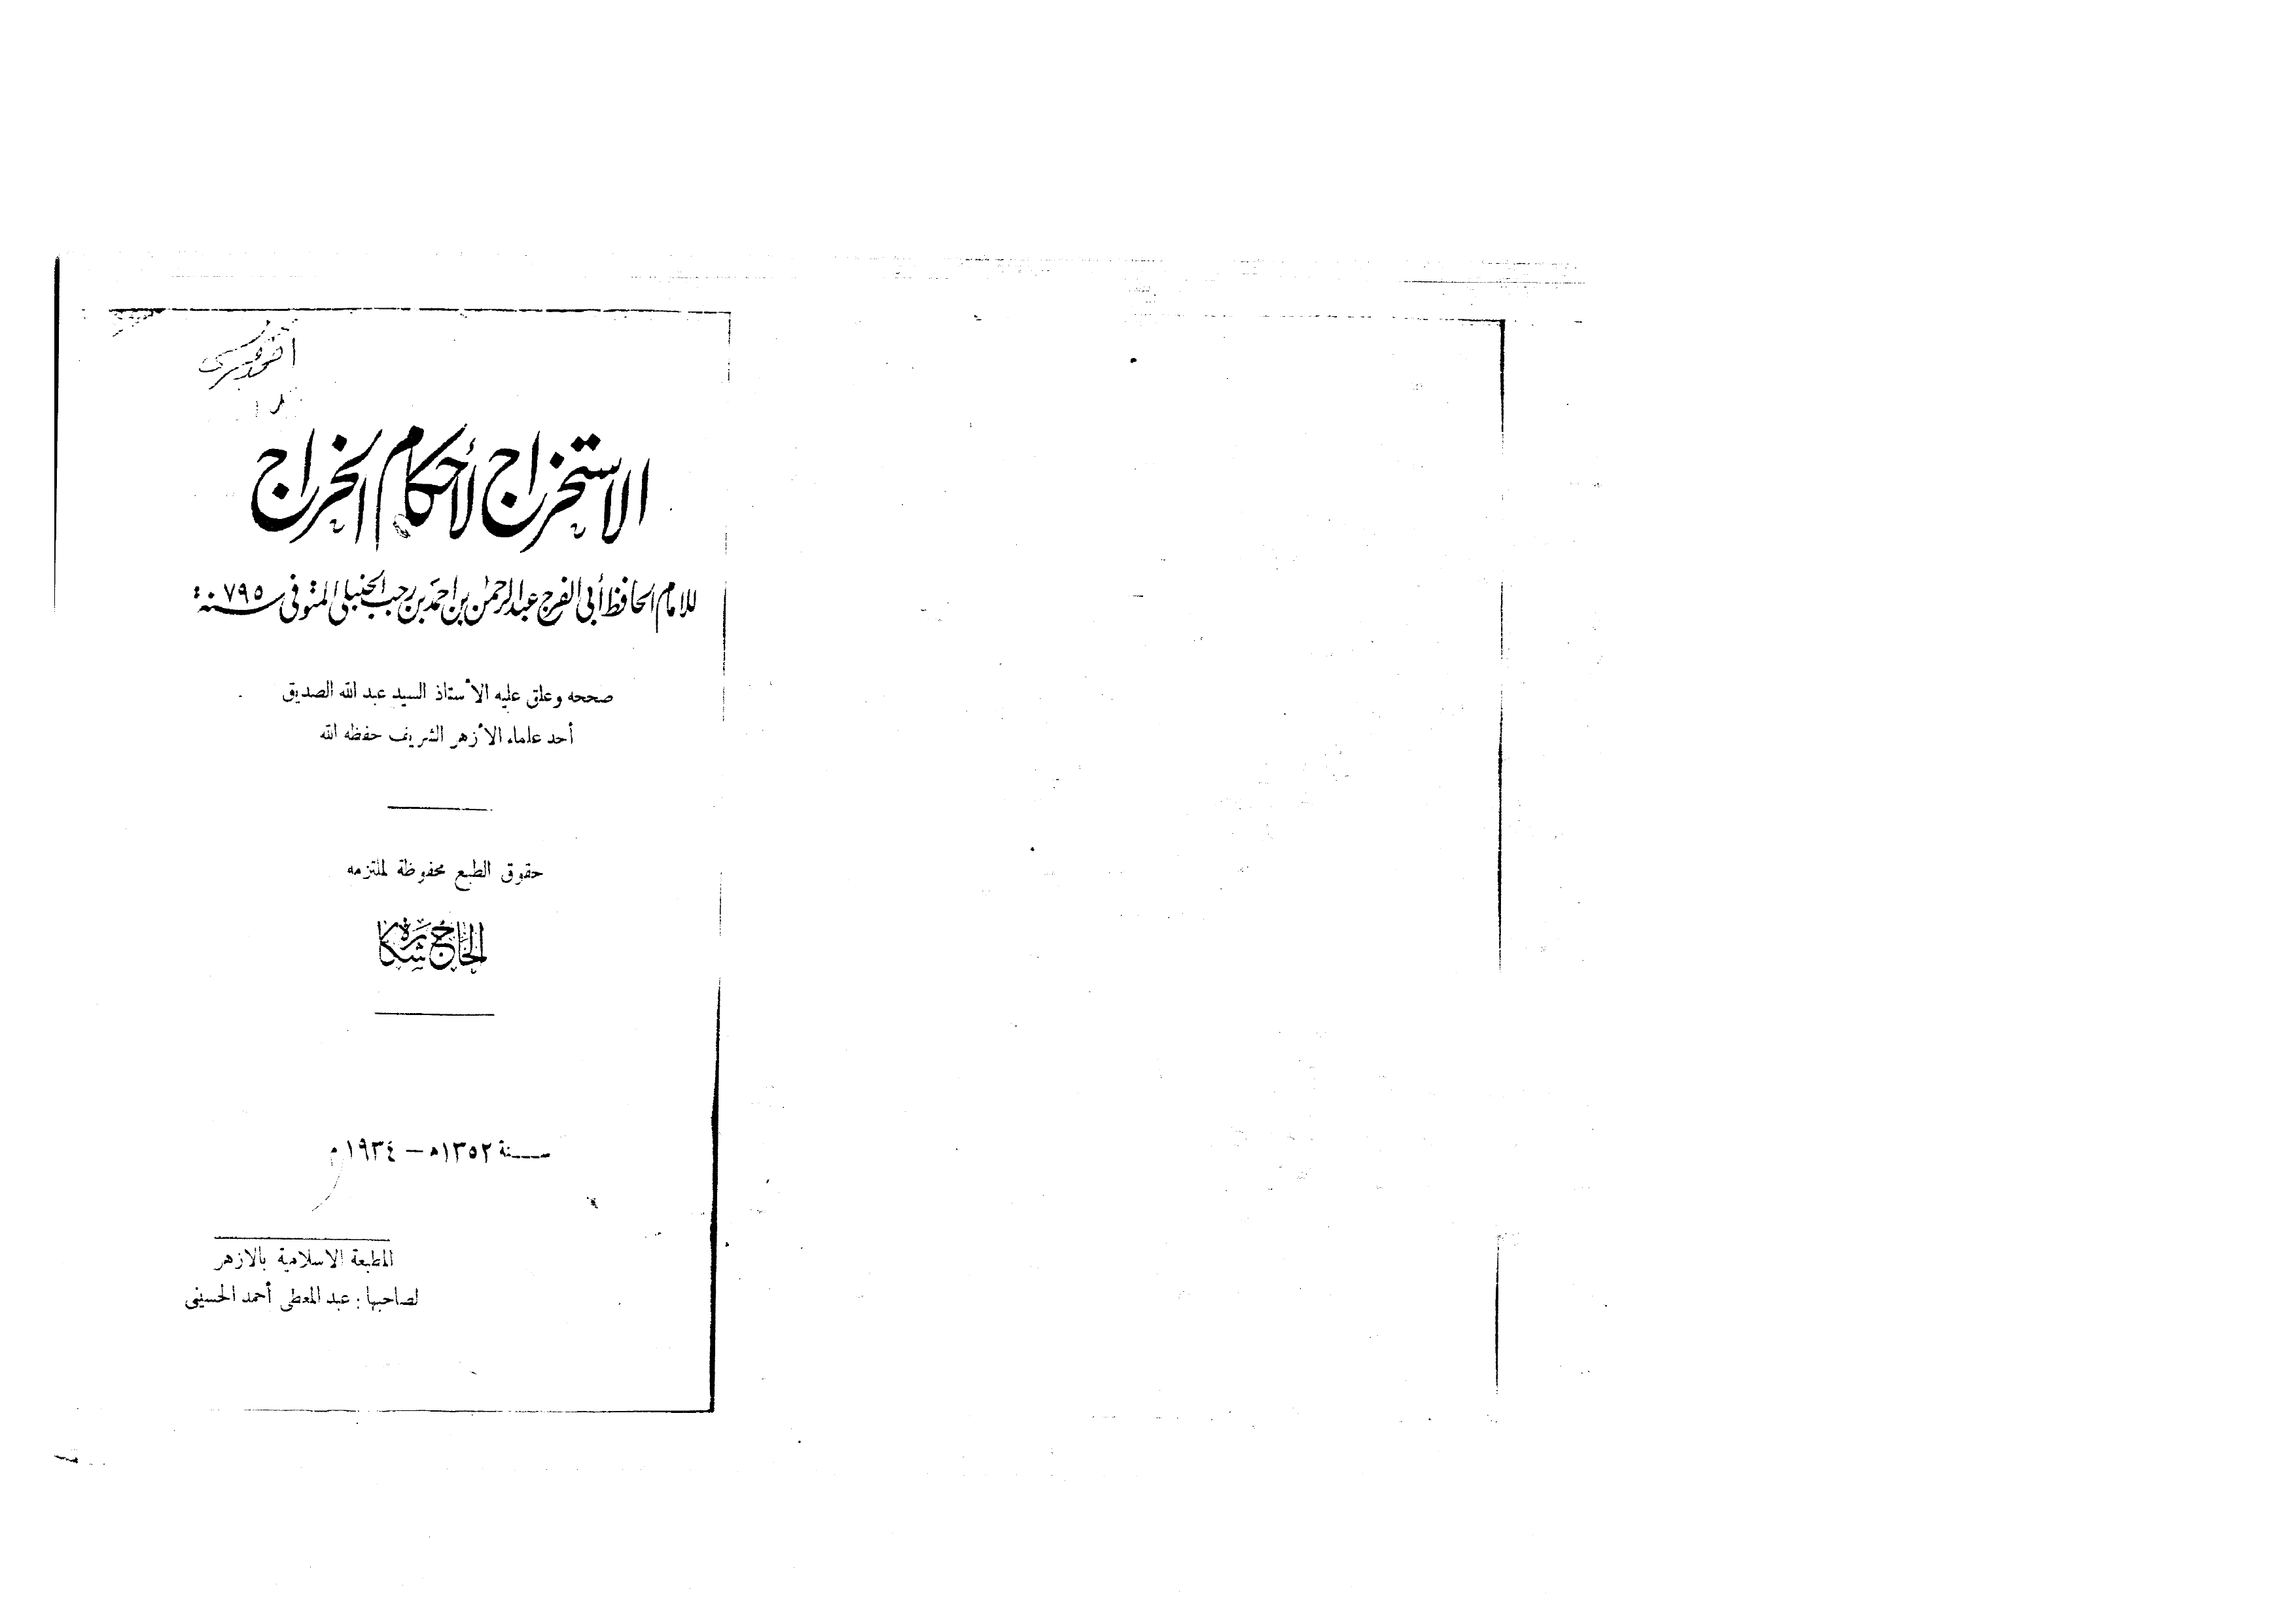 الاستخراج لأحكام الخراج
للامام الحافظ أبى الفرج عبد الرحمن بن احمد بن رجب الحنبلى المتوفى سنة ٧٩٥
صححه وعلق عليه الأستاذ السيد عبد الله الصديق
أحد علماء الأزهر الشريف حفظه الله
حقوق الطبع محفوظة لملتزمه
الحاج شكارة
سنة ١٣٥٢ه – ١٩٣٤ م
المطبعة الاسلامية بالازهر
لصاحبها : عبد المعطى أحمد الحسينى